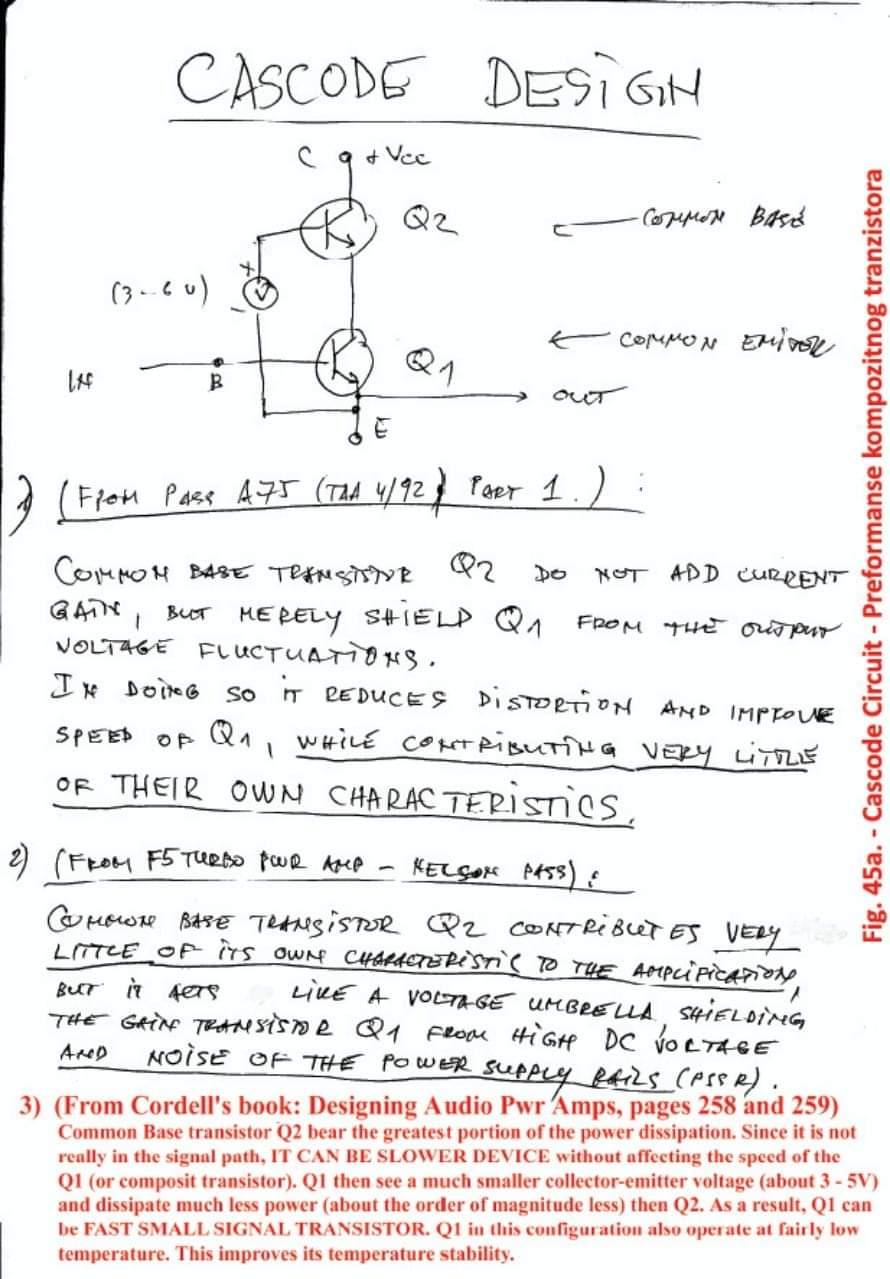 CASCODE DESIGN
C + Vcc
Q2
COMMON BASE
+
(3--6 V)
V
-
COMMON EMITOR
Q1
IN
B
OUT
E
1) (FROM PASS A75 (TAA 4/92) PART 1.) :
COMMON BASE TRANSISTOR Q2 DO NOT ADD CURRENT
GAIN, BUT MERELY SHIELD Q1 FROM THE OUTPUT
VOLTAGE FLUCTUATIONS.
IN DOING SO IT REDUCES DISTORTION AND IMPROVE
SPEED OF Q1, WHILE CONTRIBUTING VERY LITTLE
OF THEIR OWN CHARACTERISTICS.
2) (FROM F5 TURBO PWR AMP - NELSON PASS) :
COMMON BASE TRANSISTOR Q2 CONTRIBUTES VERY
LITTLE OF ITS OWN CHARACTERISTIC TO THE AMPLIFICATION,
BUT IT ACTS LIKE A VOLTAGE UMBRELLA, SHIELDING
THE GAIN TRANSISTOR Q1 FROM HIGH DC VOLTAGE
AND NOISE OF THE POWER SUPPLY RAILS (PSSR).
3) (From Cordell's book: Designing Audio Pwr Amps, pages 258 and 259)
Common Base transistor Q2 bear the greatest portion of the power dissipation. Since it is not
really in the signal path, IT CAN BE SLOWER DEVICE without affecting the speed of the
Q1 (or composit transistor). Q1 then see a much smaller collector-emitter voltage (about 3 - 5V)
and dissipate much less power (about the order of magnitude less) then Q2. As a result, Q1 can
be FAST SMALL SIGNAL TRANSISTOR. Q1 in this configuration also operate at fairly low
temperature. This improves its temperature stability.
Fig. 45a. - Cascode Circuit - Preformanse kompozitnog tranzistora